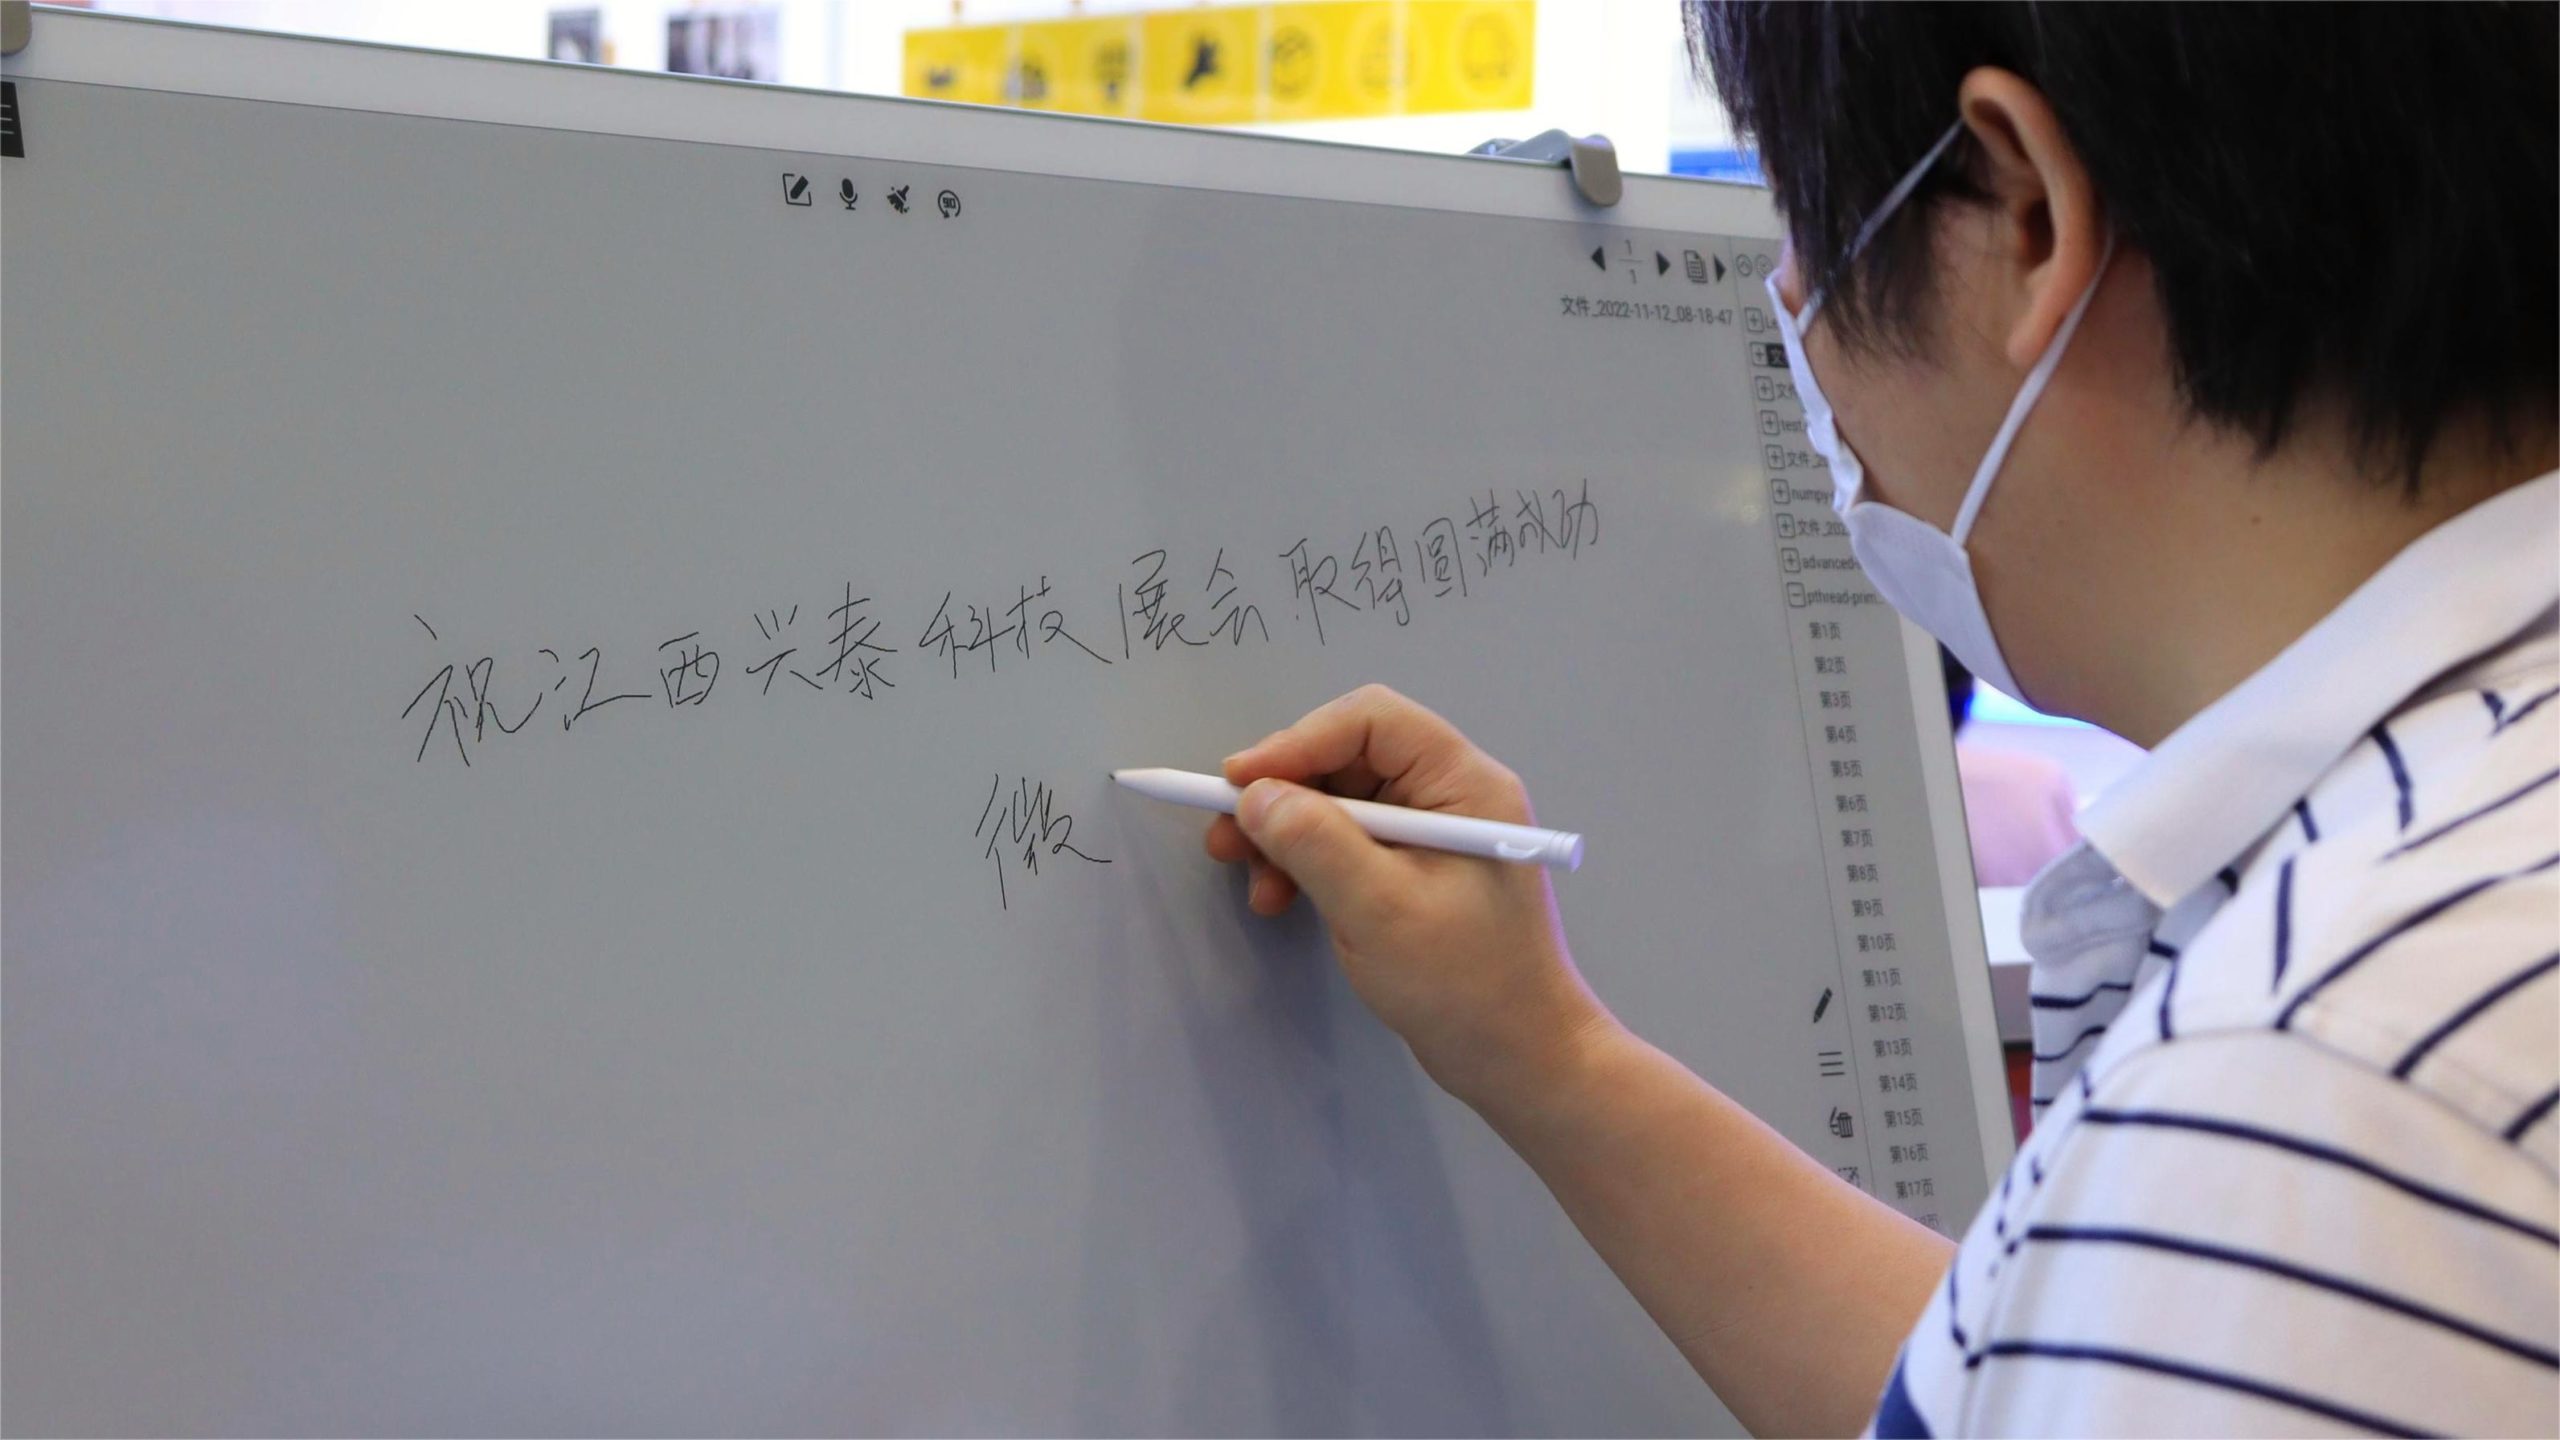 90
1
1
文件_2022-11-12_08-18-47
Le
文
文件
test
文件_2
numpy-
文件_202
advanced-
pthread-prim...
第1页
第2页
第3页
第4页
第5页
第6页
第7页
第8页
第9页
第10页
第11页
第12页
第13页
第14页
第15页
第16页
第17页
祝江西兴泰科技展会取得圆满成功
微